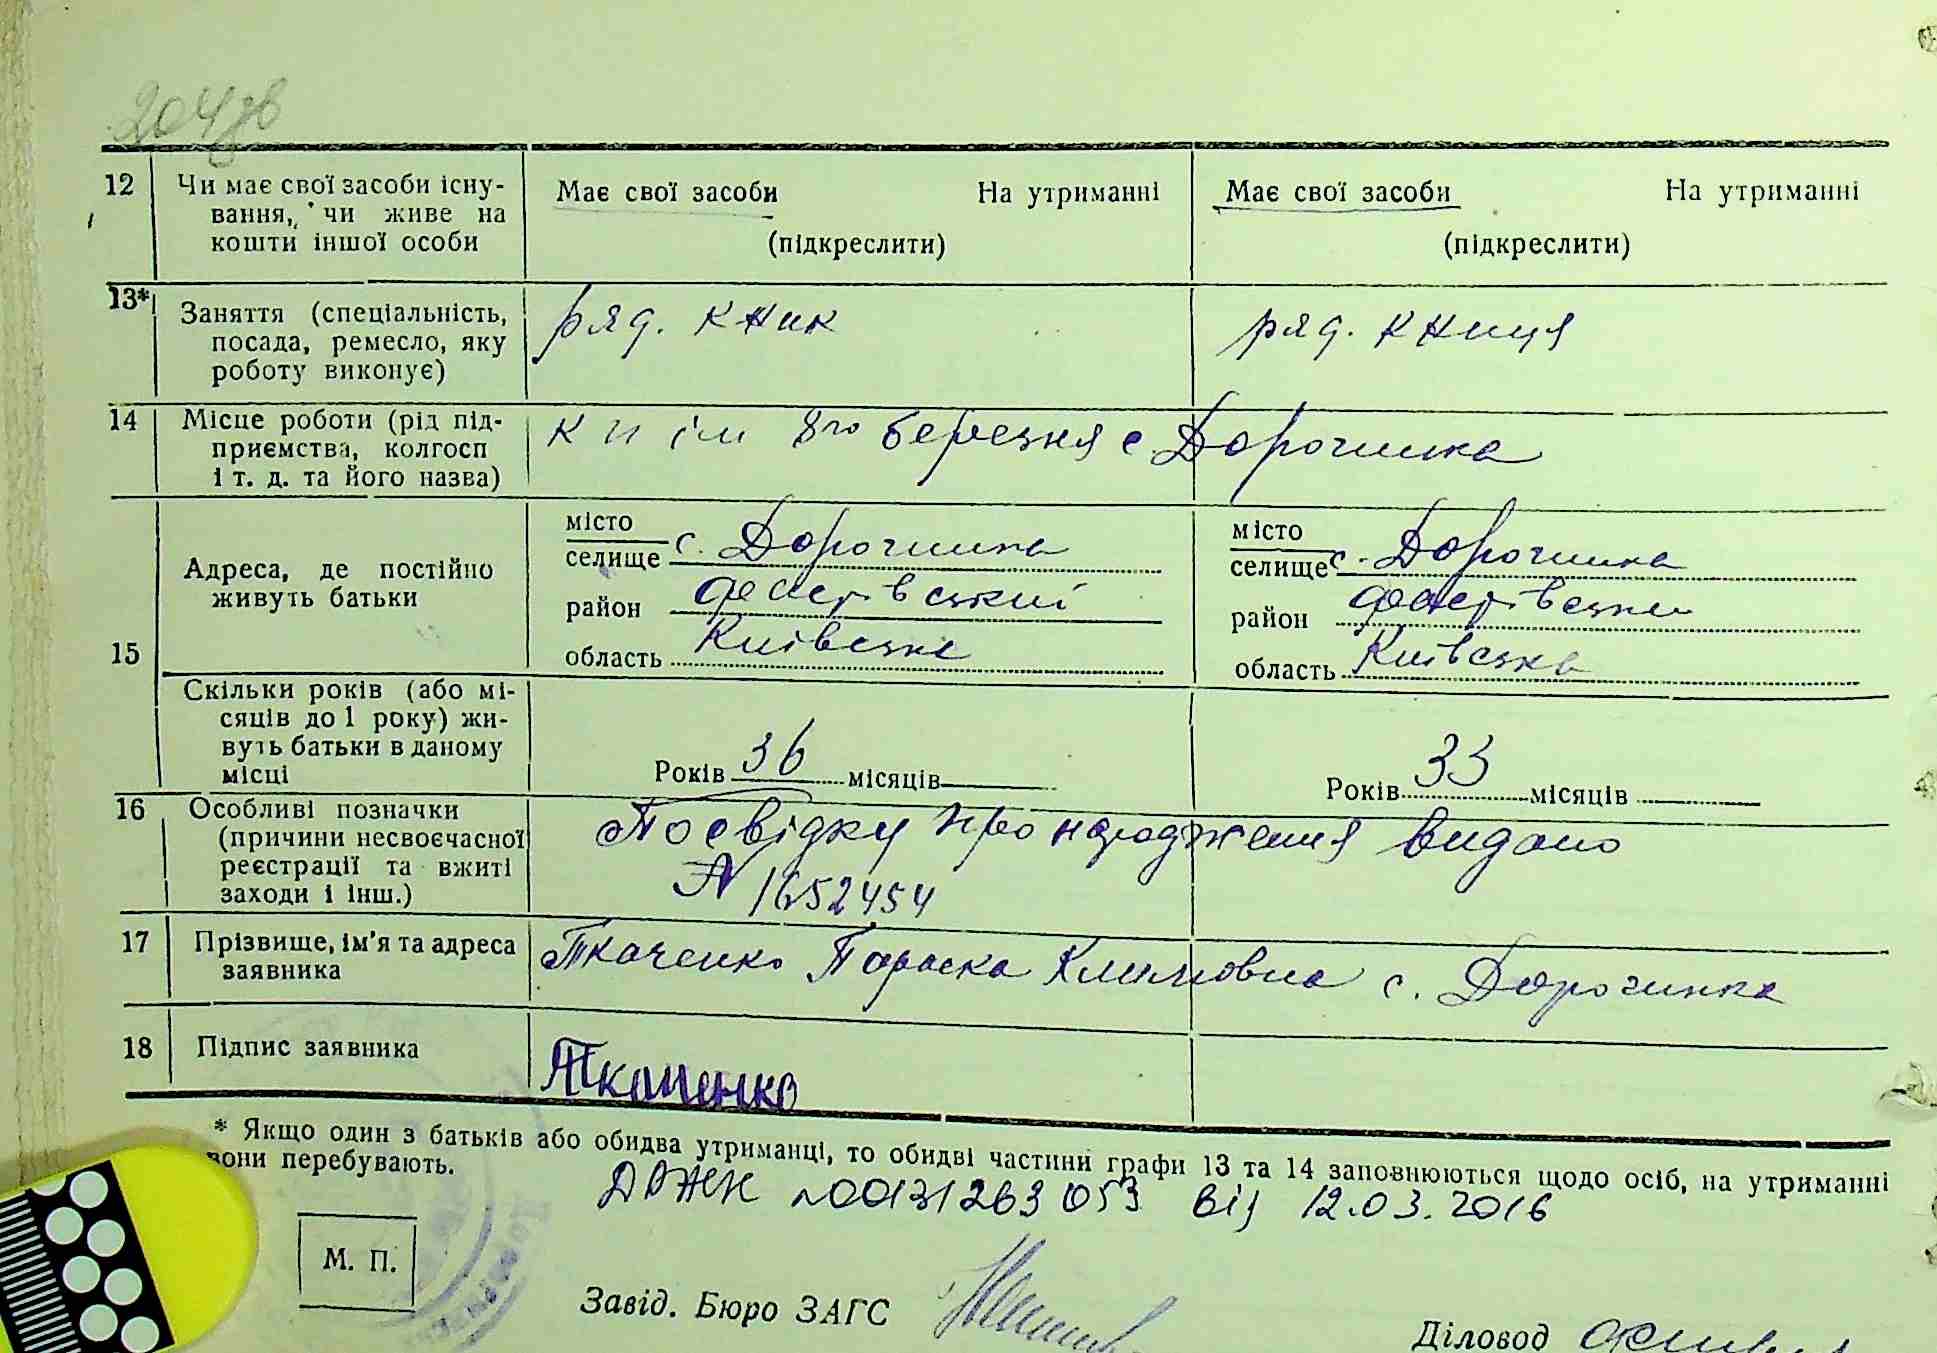 204 зв
12 Чи має свої засоби існу-
вання, чи живе на
кошти іншої особи
Має свої засоби На утриманні
(підкреслити)
Має свої засоби На утриманні
(підкреслити)
13* Заняття (спеціальність,
посада, ремесло, яку
роботу виконує)
ряд. кник
ряд. книця
14 Місце роботи (рід під-
приємства, колгосп
і т. д. та його назва)
к п ім 8го березня с. Дорогинка
15 Адреса, де постійно
живуть батьки
місто
селище с. Дорогинка
район Фастівський
область Київська
місто
селище с. Дорогинка
район Фастівськи
область Київська
Скільки років (або мі-
сяців до 1 року) жи-
вуть батьки в даному
місці
Років 36 місяців
Років 33 місяців
16 Особливі позначки
(причини несвоєчасної
реєстрації та вжиті
заходи і інш.)
Посвідку про народження видано
№ 1652454
17 Прізвище, ім'я та адреса
заявника
Ткаченко Параска Климовна с. Дорогинка
18 Підпис заявника
Ткаченко
* Якщо один з батьків або обидва утриманці, то обидві частини графи 13 та 14 заповнюються щодо осіб, на утриманні
вони перебувають.
№00131263053 від 12.03.2016
М. П.
Завід. Бюро ЗАГС
Діловод